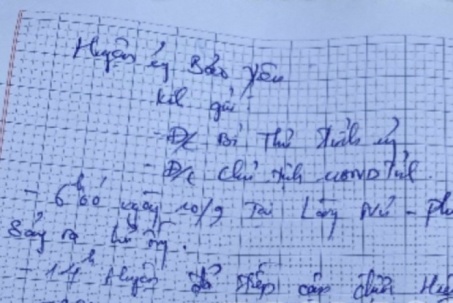 Huyện ủy Bảo Yên
Kính gửi:
- Đ/c Bí Thư Tỉnh ủy
- Đ/c Chủ tịch UBND Tỉnh
- 6h00 ngày 10/9 Tại Làng Nủ -
Sảy ra lũ ống.
- 14h Huyện đã tiếp cận được